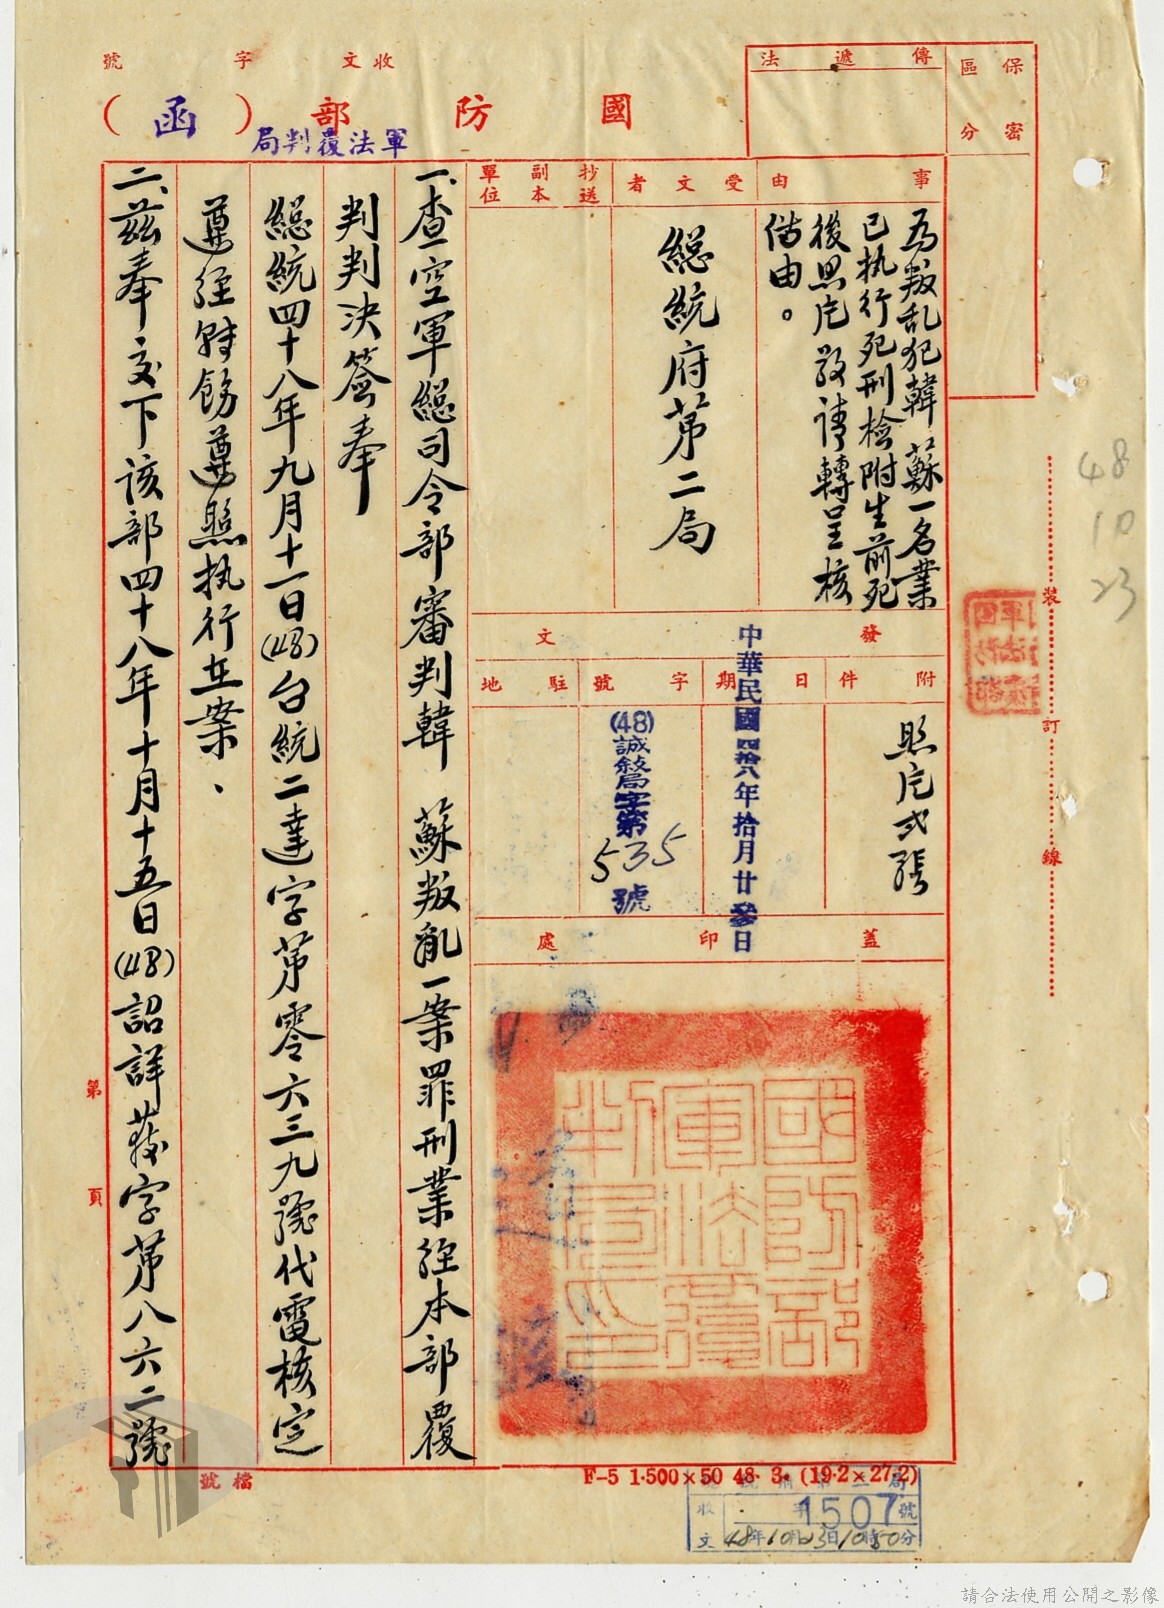 保密
區分
傳遞法
收文　字　號
國防部（函）
軍法覆判局
事由
為叛乱犯韓　蘇一名業
已执行死刑檢附生前死
後照片敬請轉呈核
備由。
受文者
總統府第二局
抄送
副本
單位
發文
附件
照片弍張
日期
中華民國四拾八年拾月廿叁日
字號
(48)誠敘局字第535號
駐地
蓋印處
國防部
軍法覆
判局印
一、查空軍總司令部審判韓　蘇叛亂一案罪刑業經本部覆
判判決簽奉
總統四十八年九月十一日(48)台統二達字第零六三九號代電核定
遵經轉飭遵照执行在案、
二、茲奉交下該部四十八年十月十五日(48)詔詳蔟字第八六二號
裝
訂
線
48
10
23
第　頁
檔號
F-5 1·500×50 48·3·(19·2×27·2)
收文
字1507號
48年10月23日10時50分
請合法使用公開之影像